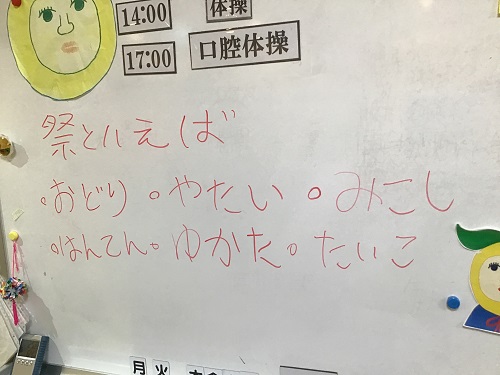 14:00 体操
17:00 口腔体操
祭といえば
・おどり・やたい・みこし
・はんてん・ゆかた・たいこ
月 火